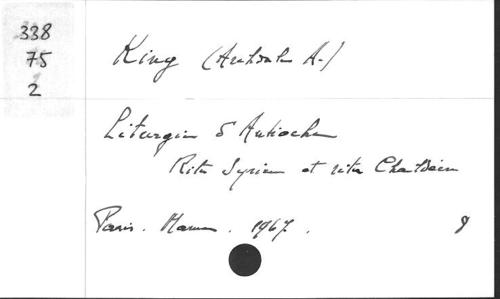 338
75
2
King (Archdale A.)
Liturgie d'Antioche
Rite Syrien et rite Chaldéen
Paris. Mame. 1967. 8